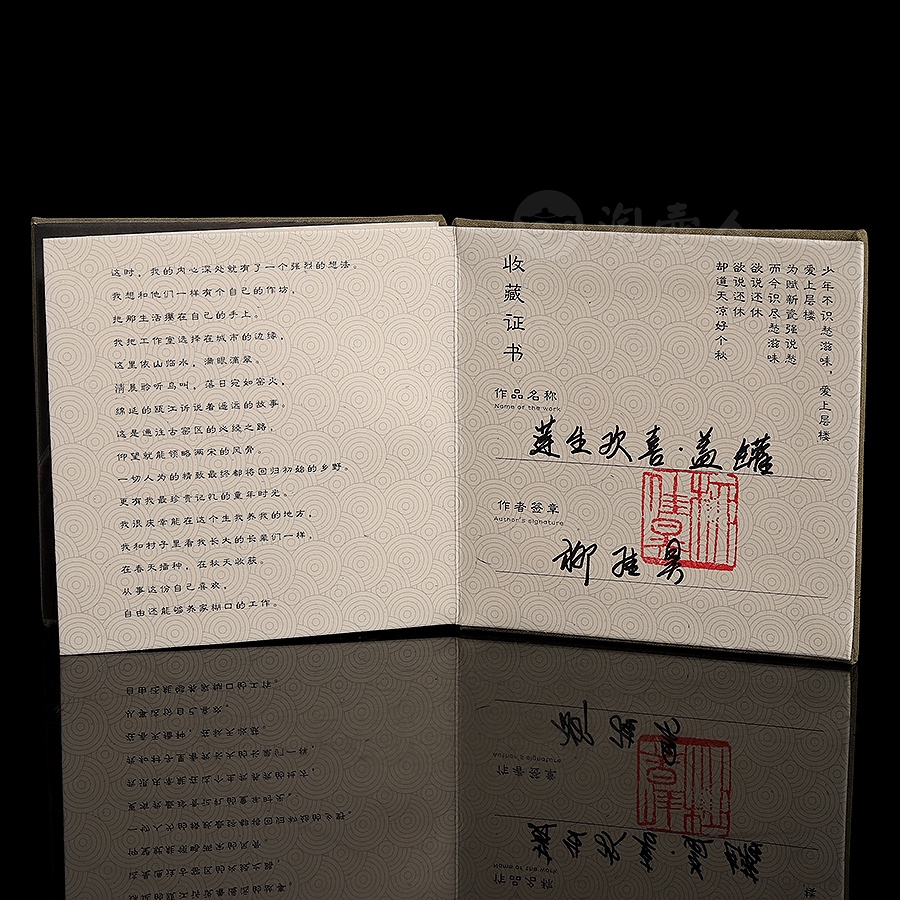 这时，我的内心深处就有了一个强烈的想法。
我想和他们一样有个自己的作坊，
把那生活攥在自己的手上。
我把工作室选择在城市的边缘，
这里依山临水，满眼滴翠。
清晨聆听鸟叫，落日宛如窑火，
绵延的瓯江诉说着遥远的故事。
这是通往古窑区的必经之路，
仰望就能领略两宋的风骨。
一切人为的精致最终都将回归初始的乡野。
更有我最珍贵记忆的童年时光。
我很庆幸能在这个生我养我的地方，
我和村子里看我长大的长辈们一样，
在春天播种，在秋天收获。
从事这份自己喜欢，
自由还能够养家糊口的工作。
淘壶人
少年不识愁滋味，爱上层楼
爱上层楼
为赋新瓷强说愁
而今识尽愁滋味
欲说还休
欲说还休
却道天凉好个秋
收藏证书
作品名称
Name of the work
莲生欢喜·盖罐
作者签章
Author's signature
柳
昊